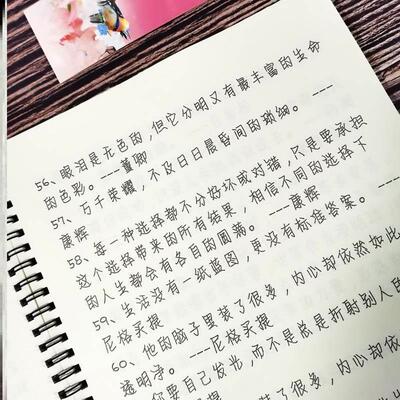 56、眼泪是无色的,但它分明又有最丰富的生命
的色彩。——董卿
57、万千荣耀,不及日日晨昏间的琐细。——
康辉
58、每一种选择都不分好坏或对错,只是要承担
这个选择带来的所有结果,相信不同的选择下
的人生都会有各自的圆满。——康辉
59、生活没有一纸蓝图,更没有标准答案。——
尼格买提
60、他的脑子里装了很多,内心却依然如此
透明净。——尼格买提
你要自己发光,而不是总是折射别人的
装了很多,内心却依